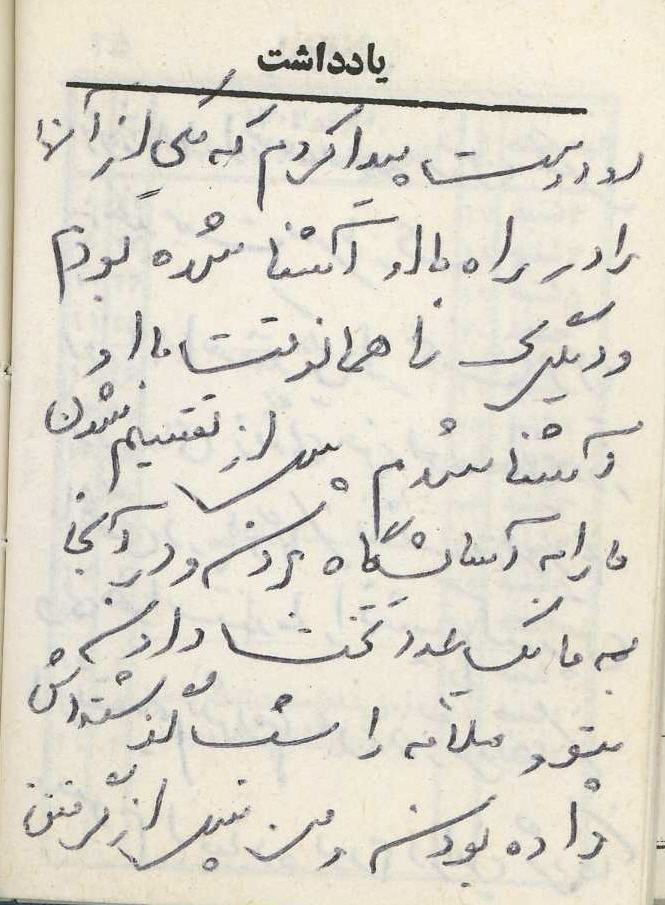 یادداشت
دو دوست پیدا کردم که یکی از آنها
را در راه با او آشنا شده بودم
و دیگری را همانوقت با او
آشنا شدم پس از تقسیم شدن
ما را به آسایشگاه بردند و در آنجا
به ما یک عدد تخت دادند
پتو و ملافه را شب گذشته اش
داده بودند و من پس از گرفتن